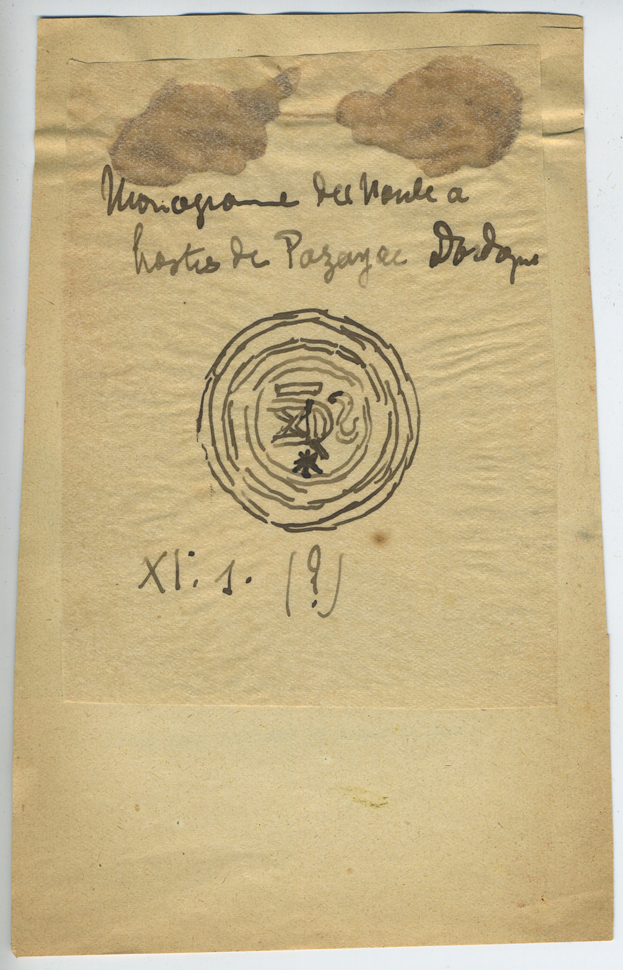 Monograme du Moule a
hosties de Pazayac Dordogne
XI: s. (?)